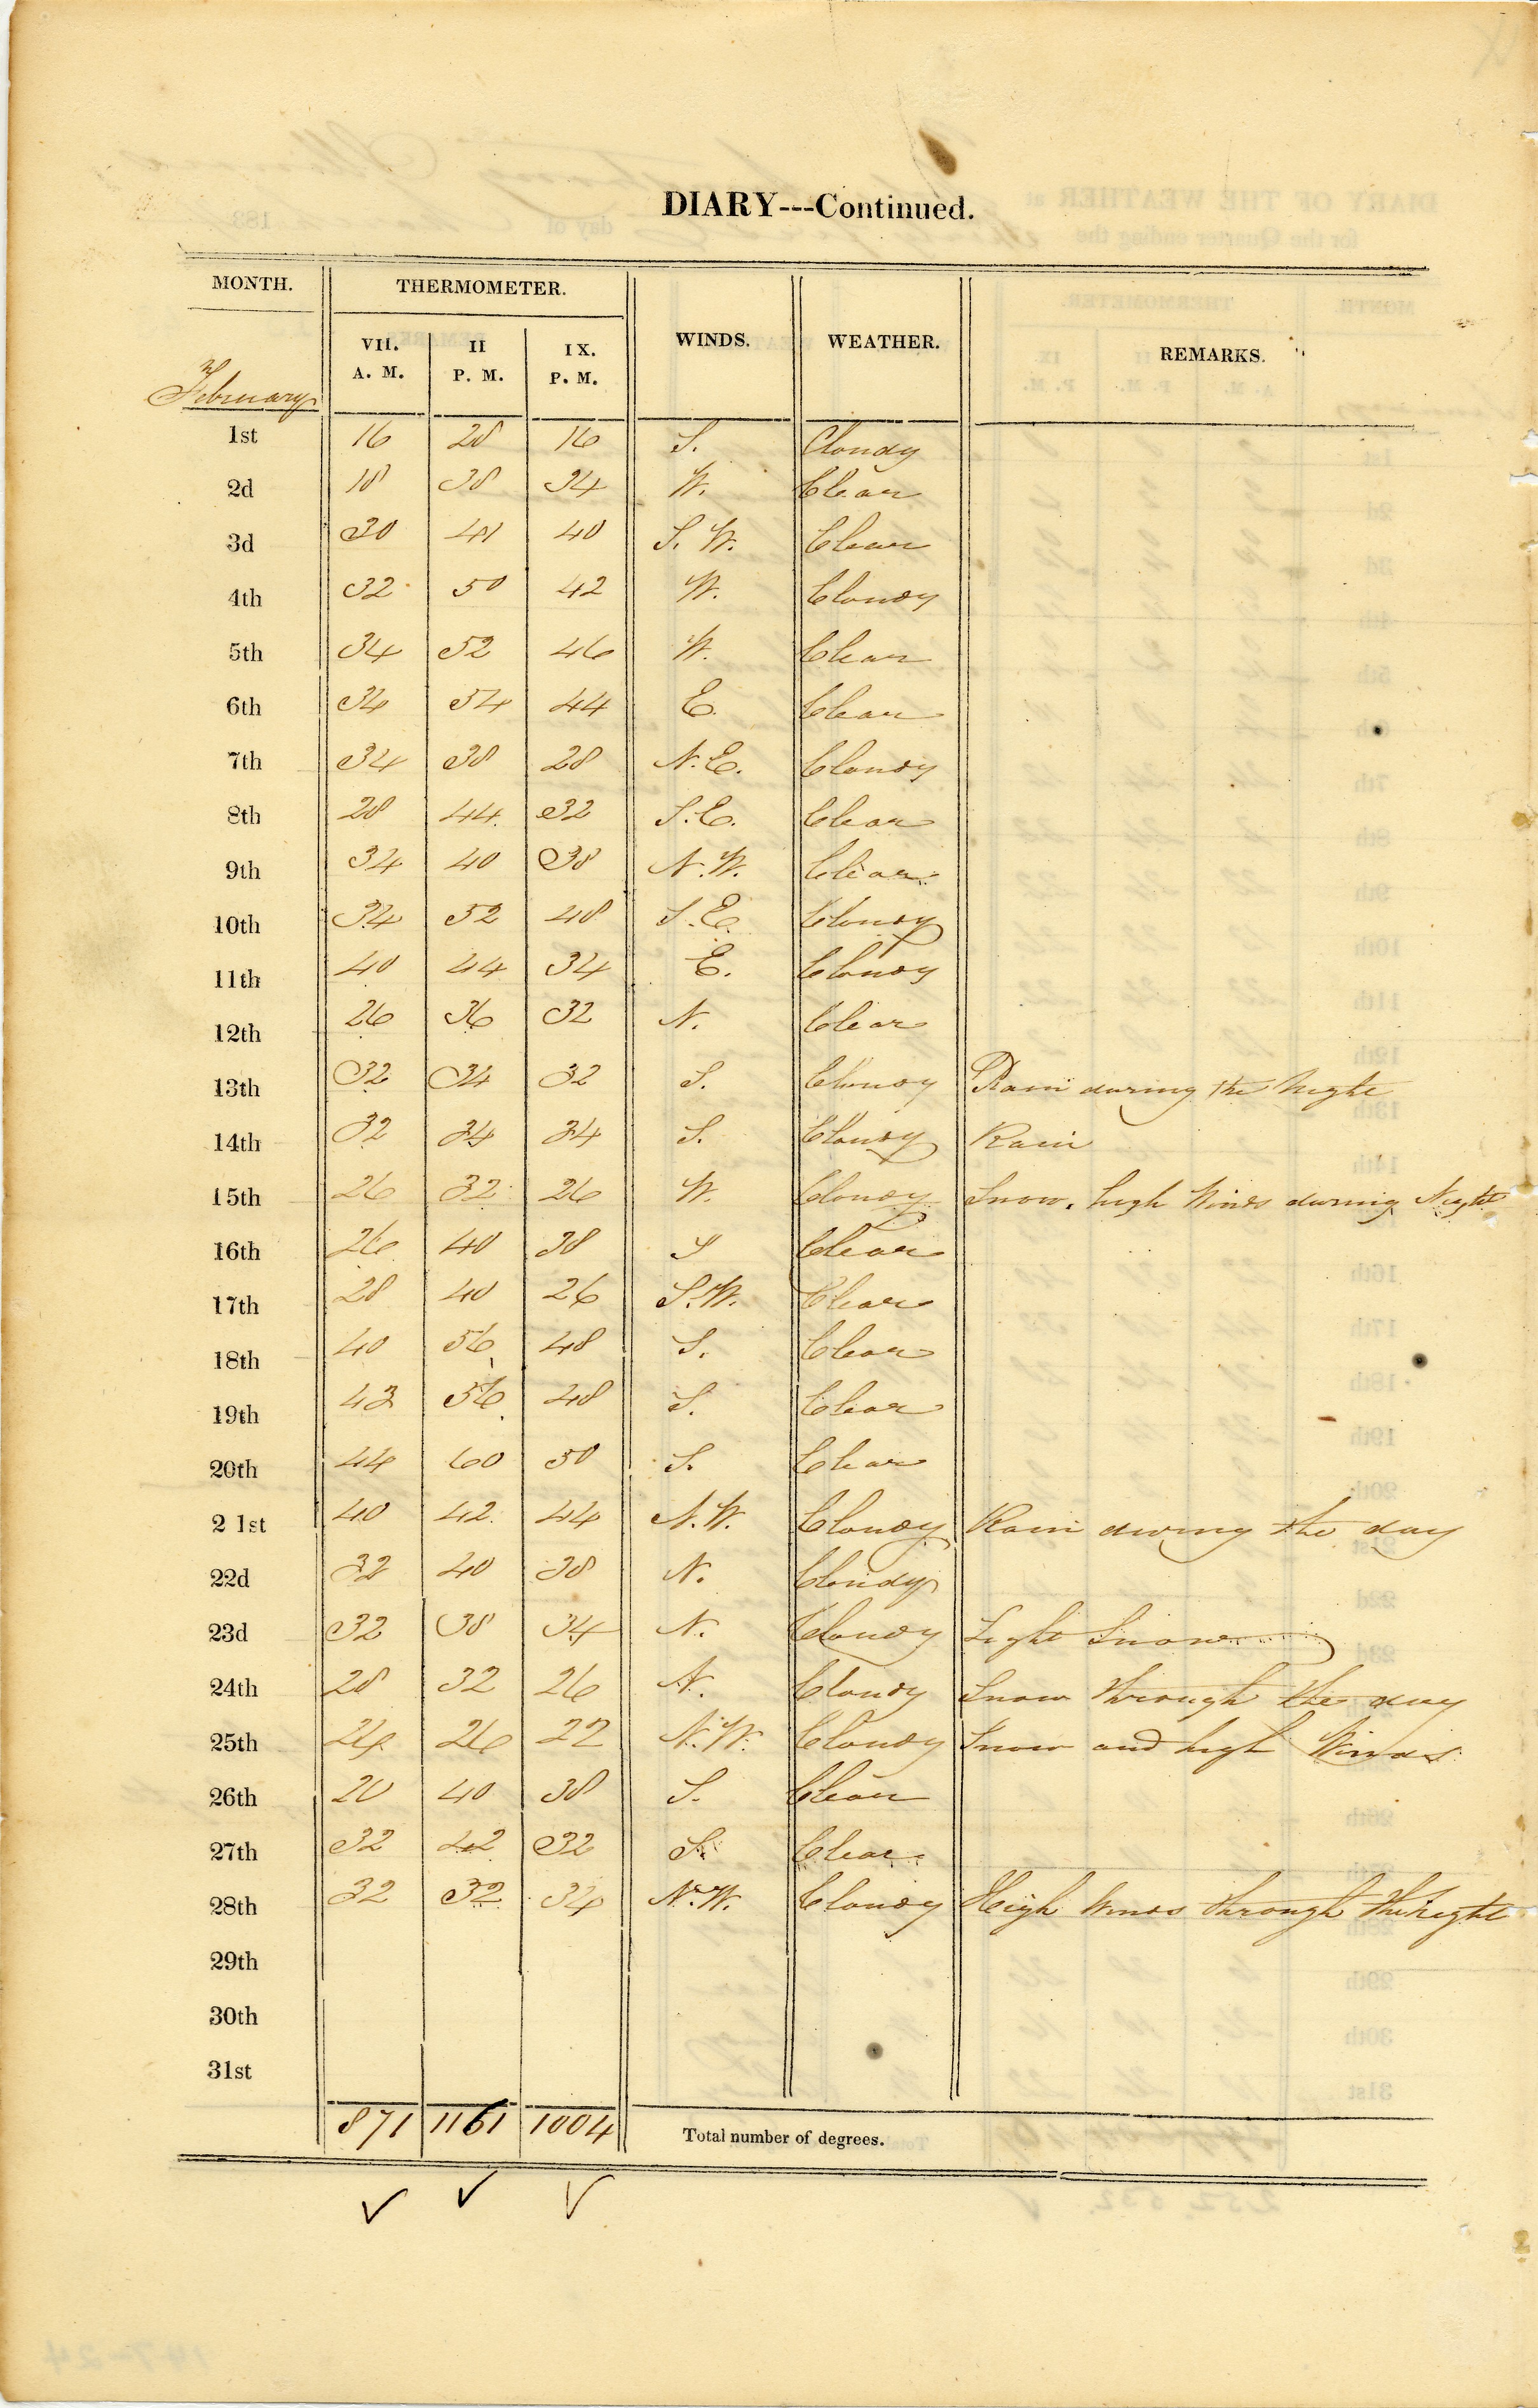 DIARY---Continued.
MONTH. THERMOMETER. WINDS. WEATHER. REMARKS.
VII. A. M. II P. M. IX. P. M.
February
1st 16 28 16 S. Cloudy
2d 18 38 34 W. Clear
3d 30 41 40 S. W. Clear
4th 32 50 42 W. Cloudy
5th 34 52 46 W. Clear
6th 34 54 44 E. Clear
7th 34 38 28 N.E. Cloudy
8th 28 44 32 S.E. Clear
9th 34 40 38 N.W. Clear
10th 34 52 48 S.E. Cloudy
11th 40 44 34 E. Cloudy
12th 26 36 32 N. Clear
13th 32 34 32 S. Cloudy Rain during the Night
14th 32 34 34 S. Cloudy Rain
15th 26 32 26 W. Cloudy Snow. high Winds during Night
16th 26 40 38 S Clear
17th 28 40 26 S.W. Clear
18th 40 56 48 S. Clear
19th 43 56 48 S. Clear
20th 44 60 50 S. Clear
21st 40 42 44 N.W. Cloudy Rain during the day
22d 32 40 38 N. Cloudy
23d 32 38 34 N. Cloudy Light Snow
24th 28 32 26 N. Cloudy Snow through the day
25th 24 26 22 N.W. Cloudy Snow and high Winds
26th 20 40 38 S. Clear
27th 32 42 32 S. Clear
28th 32 32 34 N.W. Cloudy High Winds through the night
29th
30th
31st
871 1161 1004 Total number of degrees.